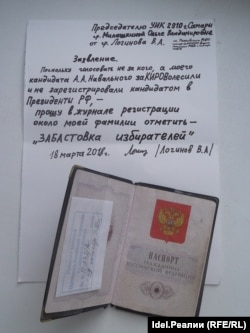 Председателю УИК 2910 г. Самары
гр. Милешкиной Ольге Владимировне
от гр. Логинова В.А.
Заявление.
Поскольку голосовать не за кого, а моего
кандидата А.А. Навального заКИРОВолесили
и не зарегистрировали кандидатом в
Президенты РФ, —
прошу в журнале регистрации
около моей фамилии отметить —
„ЗАБАСТОВКА избирателей"
18 марта 2018 г. /Логинов В.А/
ПАСПОРТ
ГРАЖДАНИНА
РОССИЙСКОЙ ФЕДЕРАЦИИ
Idel.Реалии (RFE/RL)